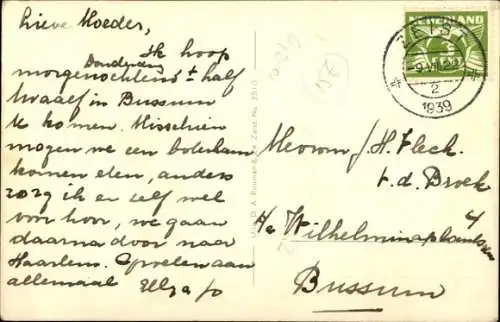 Lieve Moeder,
Donderdag
Ik hoop
morgenochtend ± half
twaalf in Bussum
te komen. Misschien
mogen we een boterham
komen eten, anders
zorg ik er zelf wel
voor hoor, we gaan
daarna door naar
Haarlem. Groeten aan
allemaal
NEDERLAND
ZEIST
2
1939
Mevrouw J.H. Fleck.
v.d. Broek
4
Wilhelminaplantsoen
Bussum